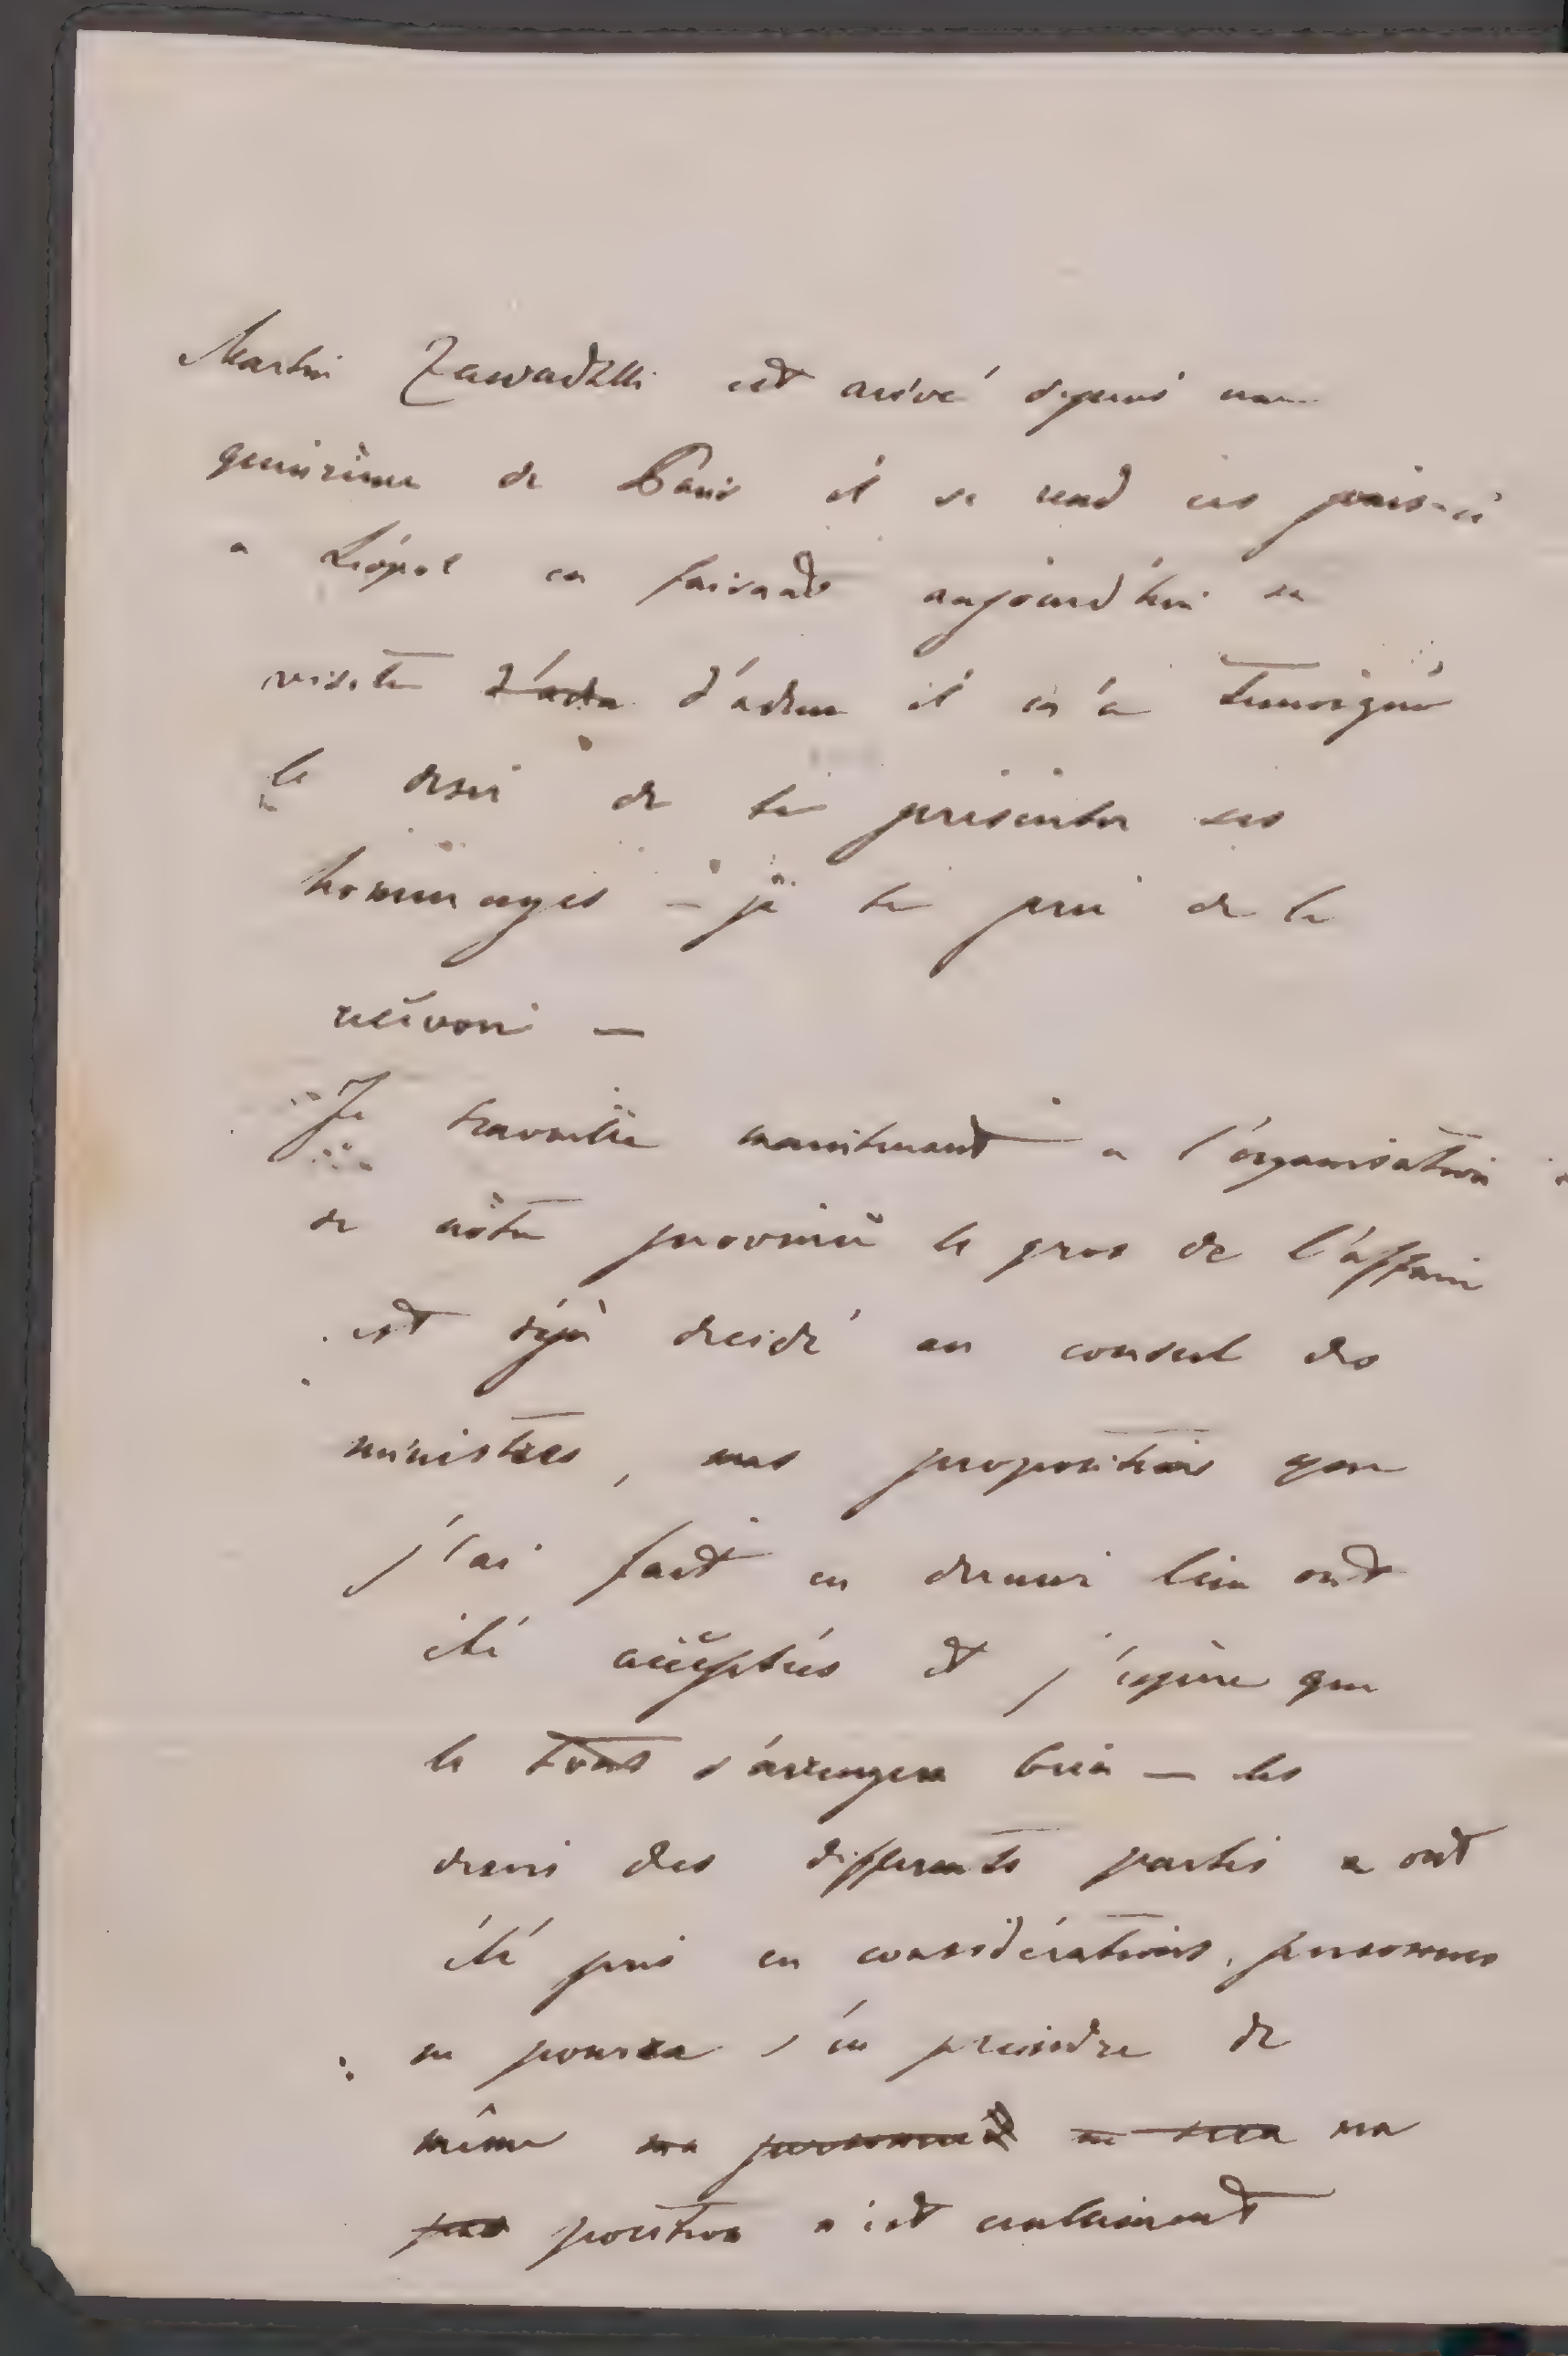 Martin Zawadzki est arivé depuis une
quinzaine de Paris il se rend ces jours-ci
a Léopol en faisant aujourd'hui sa
visite d'ada d'adieu il m'a temoigné
le desir de te présenter ses
hommages – je te prie de le
recevoir —
Je travaille maintenant a l'organisation
de nôtre province le gros de l'affaire
est déjà decidé au conseil des
ministres, mes propositions que
j'ai fait en dernier lieu ont
été acceptés et j'espère que
le tout s'arrengera bien — les
desirs des differents partis ont
été pris en considérations, personnes
ne pourra s'en preindre de
même ma personne ne sera ma
pos position n'est